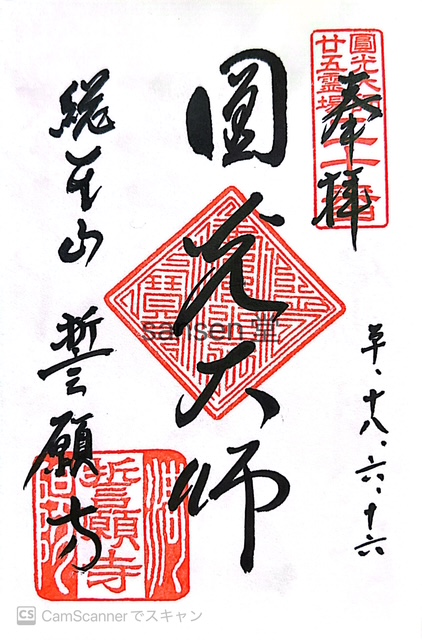 圓光大師
廿五霊場
奉拝
平、十八、六、十六
圓光大師
総本山 誓願寺
誓願寺
sansen 堂
CS CamScannerでスキャン